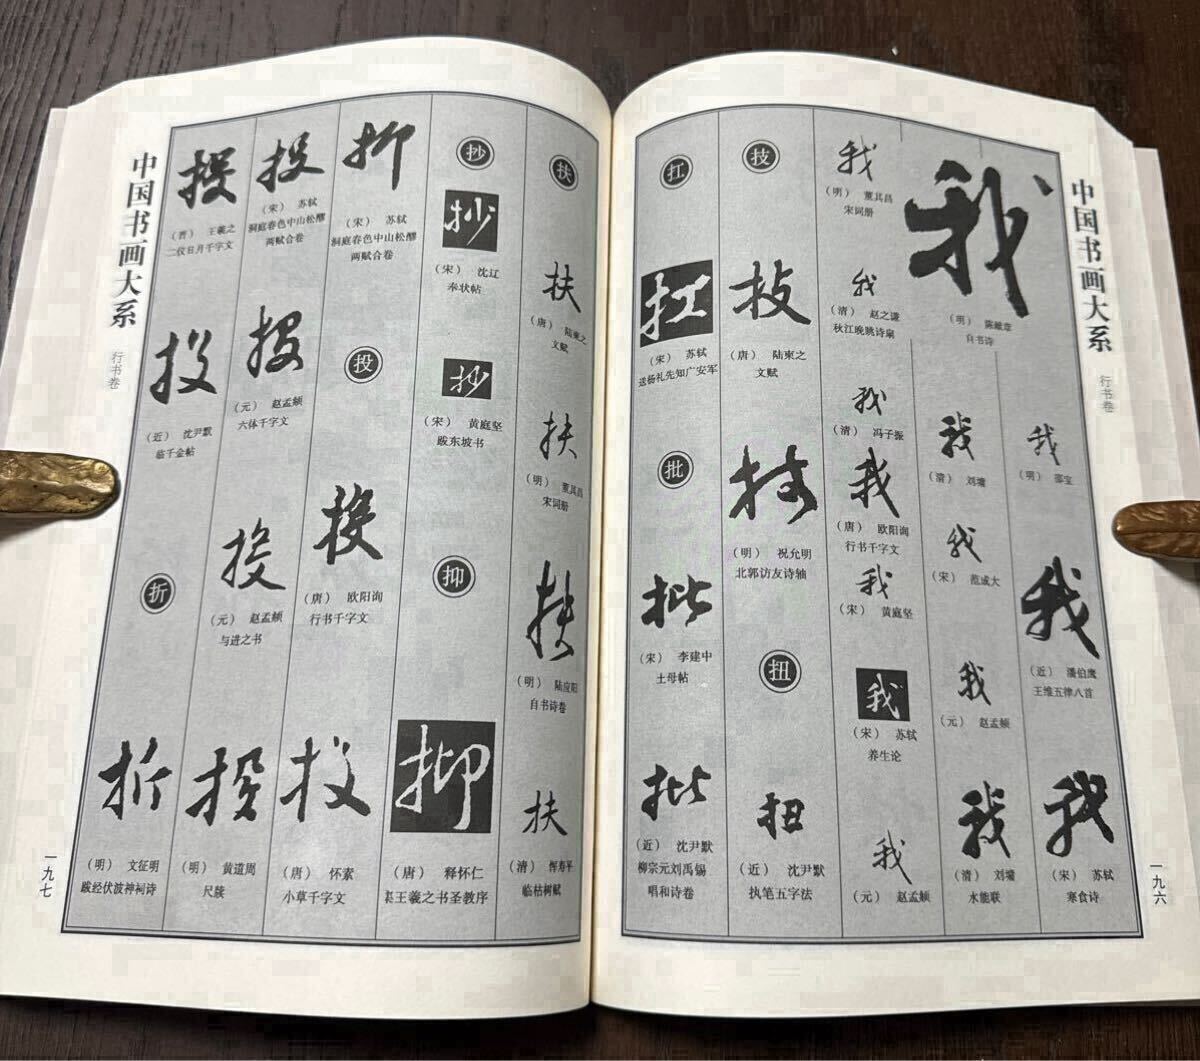 中国书画大系
行书卷
一九六
我
（明） 陈献章
自书诗
我
（明） 邵宝
我
（近） 潘伯鹰
王维五律八首
我
（宋） 苏轼
寒食诗
我
（清） 刘墉
我
（宋） 范成大
我
（元） 赵孟頫
我
（清） 刘墉
水能联
我
（明） 董其昌
宋词册
我
（清） 赵之谦
秋江晚眺诗扇
我
（清） 冯子振
我
（唐） 欧阳询
行书千字文
我
（宋） 黄庭坚
我
（宋） 苏轼
养生论
我
（元） 赵孟頫
技
技
（唐） 陆柬之
文赋
技
（明） 祝允明
北郭访友诗轴
扭
扭
（近） 沈尹默
执笔五字法
扛
扛
（宋） 苏轼
送杨礼先知广安军
批
批
（宋） 李建中
土母帖
批
（近） 沈尹默
柳宗元刘禹锡
唱和诗卷
扶
扶
（唐） 陆柬之
文赋
扶
（明） 董其昌
宋词册
扶
（明） 陆应阳
自书诗卷
扶
（清） 恽寿平
临枯树赋
抄
抄
（宋） 沈辽
奉状帖
抄
（宋） 黄庭坚
跋东坡书
抑
抑
（唐） 释怀仁
集王羲之书圣教序
抑
（宋） 苏轼
洞庭春色中山松醪
两赋合卷
投
投
（唐） 欧阳询
行书千字文
投
（唐） 怀素
小草千字文
投
（宋） 苏轼
洞庭春色中山松醪
两赋合卷
投
（元） 赵孟頫
六体千字文
投
（元） 赵孟頫
与进之书
投
（明） 黄道周
尺牍
投
（晋） 王羲之
二仪日月千字文
投
（近） 沈尹默
临千金帖
折
折
（明） 文征明
跋经伏波神祠诗
中国书画大系
行书卷
一九七